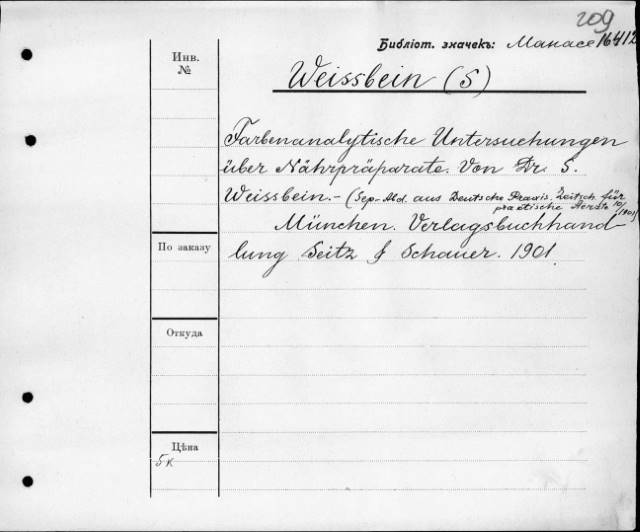 209
Библіот. значекъ: Манасе 16412
Инв.
№
Weissbein (S)
Farbenanalytische Untersuchungen
über Nährpräparate. Von Dr. S.
Weissbein. - (Sep.-Abd. aus Deutsche Praxis. Zeitsch. für
practische Aerzte 10/1901)
München. Verlagsbuchhand
По заказу
lung Seitz & Schauer. 1901.
Откуда
Цѣна
5 к